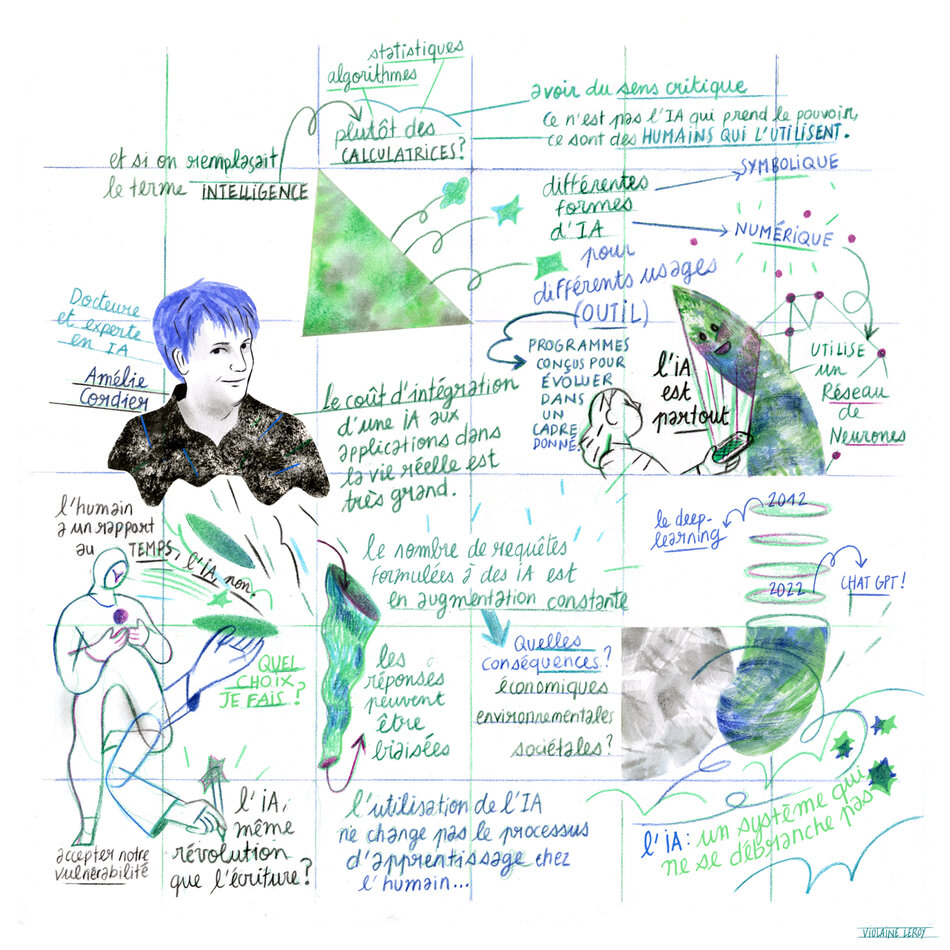 statistiques
algorithmes
plutôt des
CALCULATRICES?
et si on remplaçait
le terme INTELLIGENCE
avoir du sens critique
ce n'est pas l'IA qui prend le pouvoir,
ce sont des HUMAINS QUI L'UTILISENT.
différentes
formes
d'IA
SYMBOLIQUE
NUMÉRIQUE
pour
différents usages
(OUTIL)
PROGRAMMES
CONÇUS POUR
ÉVOLUER
DANS
UN
CADRE
DONNÉ
UTILISE
un
Réseau
de
Neurones
l'iA
est
partout
Docteure
et experte
en IA
Amélie
Cordier
le coût d'intégration
d'une IA aux
applications dans
la vie réelle est
très grand.
l'humain
a un rapport
au TEMPS, l'IA non.
le nombre de requêtes
formulées à des iA est
en augmentation constante
le deep-
learning
2012
2022
CHAT GPT!
QUEL
CHOIX
JE FAIS?
les
réponses
peuvent
être
biaisées
Quelles
conséquences?
économiques
environnementales
sociétales?
accepter notre
vulnérabilité
l'iA,
même
révolution
que l'écriture?
l'utilisation de l'IA
ne change pas le processus
d'apprentissage chez
l'humain...
l'iA: un système qui
ne se débranche pas
VIOLAINE LEROY